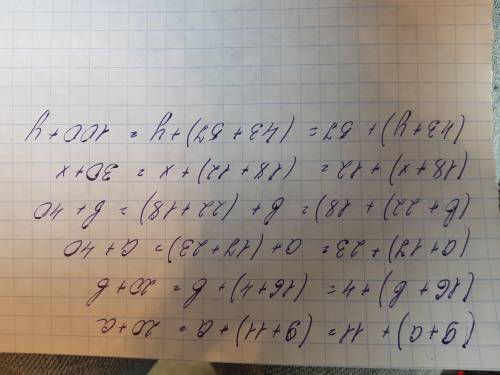 (9+a)+11=(9+11)+a=20+a
(16+b)+4=(16+4)+b=20+b
(a+17)+23=a+(17+23)=a+40
(b+22)+18=b+(22+18)=b+40
(18+x)+12=(18+12)+x=30+x
(43+y)+57=(43+57)+y=100+y